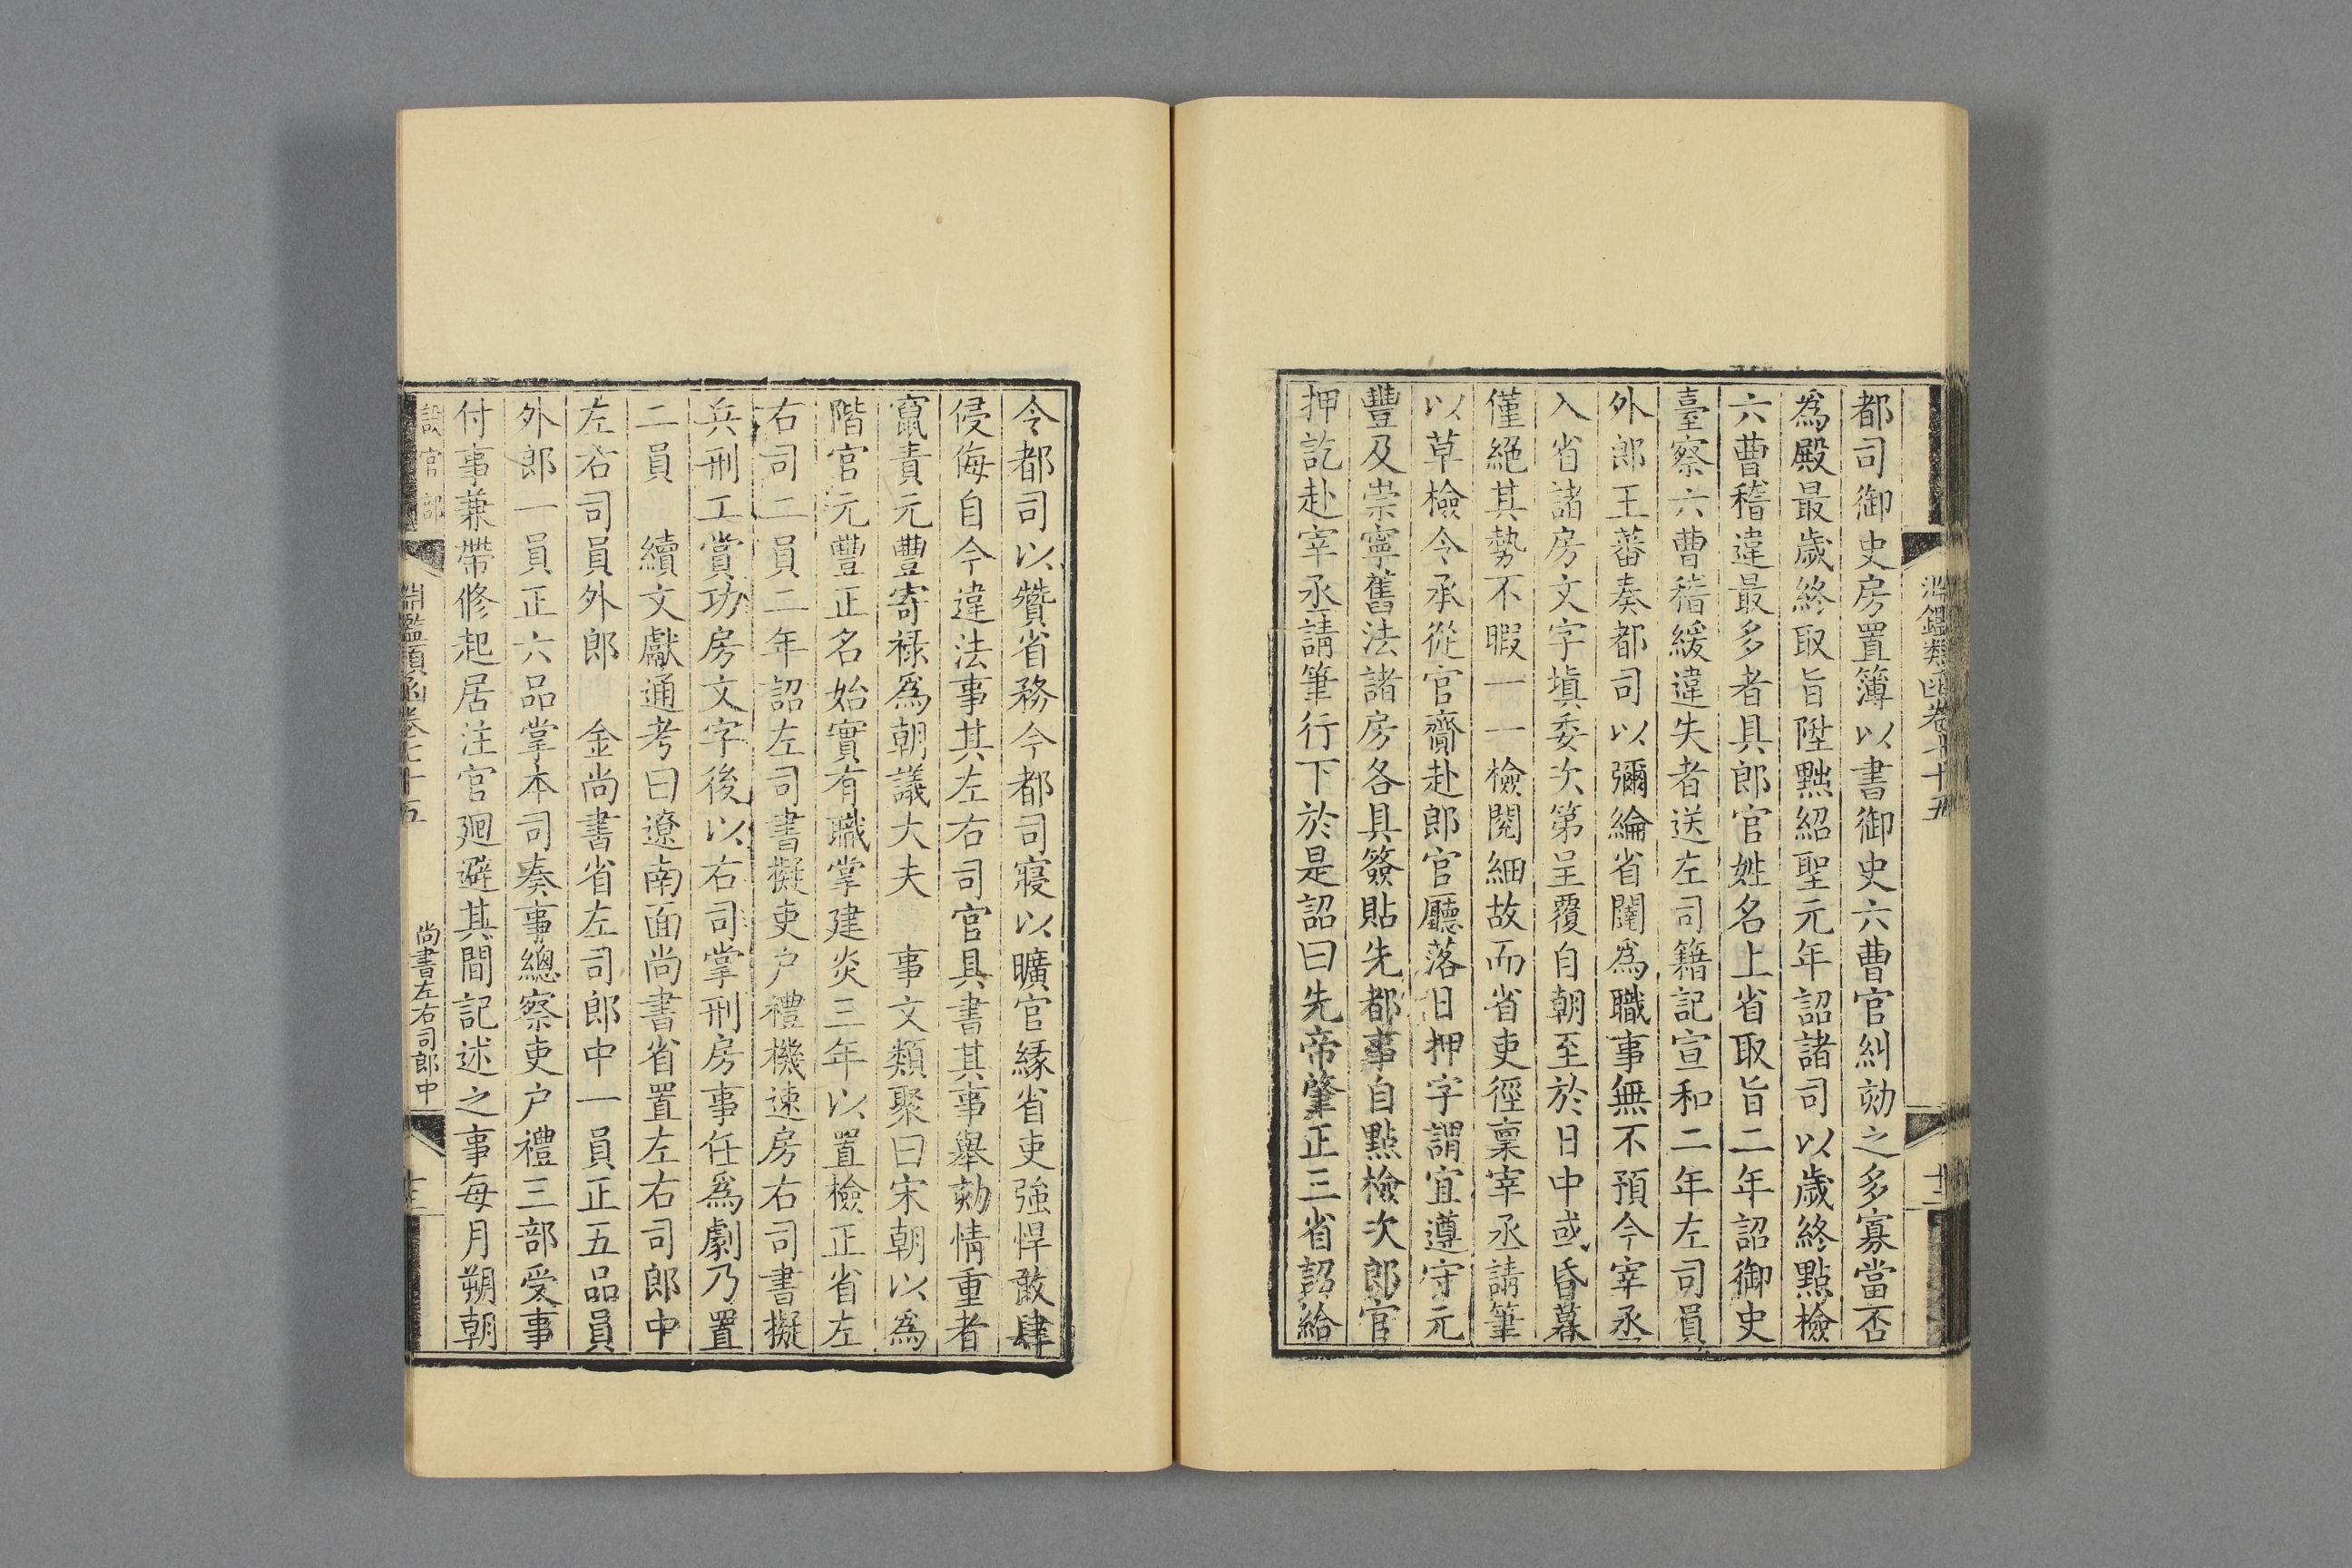 淵鑑類函卷七十五
十二
都司御史房置簿以書御史六曹官糾劾之多寡當否
爲殿最歲終取旨陞黜紹聖元年詔諸司以歲終點檢
六曹稽違最多者具郎官姓名上省取旨二年詔御史
臺察六曹稽緩違失者送左司籍記宣和二年左司員
外郎王蕃奏都司以彌綸省闥爲職事無不預今宰丞
入省諸房文字塡委次第呈覆自朝至於日中或昏暮
僅絕其勢不暇一一檢閱細故而省吏徑稟宰丞請筆
以草檢令承從官齎赴郎官廳落日押字謂宜遵守元
豐及崇寧舊法諸房各具簽貼先都事自點檢次郎官
押訖赴宰丞請筆行下於是詔曰先帝肇正三省詔給
令都司以贊省務今都司寢以曠官緣省吏強悍敢肆
侵侮自今違法事其左右司官具書其事舉劾情重者
竄責元豐寄祿爲朝議大夫　事文類聚曰宋朝以爲
階官元豐正名始實有職掌建炎三年以置檢正省左
右司二員二年詔左司書擬吏户禮機速房右司書擬
兵刑工賞功房文字後以右司掌刑房事任爲劇乃置
二員　續文獻通考曰遼南面尚書省置左右司郎中
左右司員外郎　金尚書省左司郎中一員正五品員
外郎一員正六品掌本司奏事總察吏户禮三部受事
付事兼帶修起居注官廻避其間記述之事每月朔朝
設官部
淵鑑類函卷七十五
尚書左右司郎中
十三